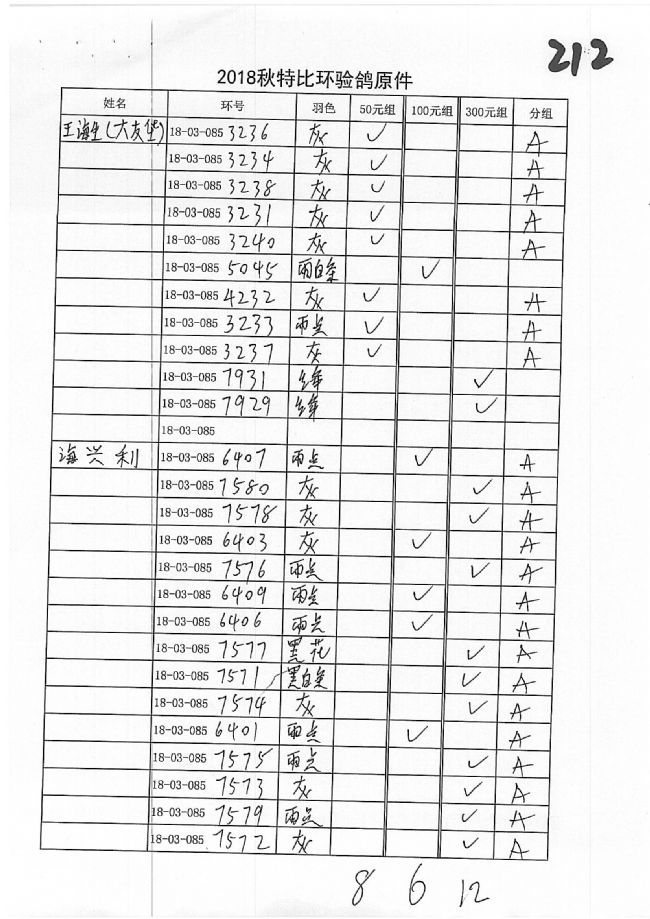 212
2018秋特比环验鸽原件
姓名 环号 羽色 50元组 100元组 300元组 分组
王海生(大友堡) 18-03-085 3236 灰 ✓ A
18-03-085 3234 灰 ✓ A
18-03-085 3238 灰 ✓ A
18-03-085 3231 灰 ✓ A
18-03-085 3240 灰 ✓ A
18-03-085 5045 雨白条 ✓
18-03-085 4232 灰 ✓ A
18-03-085 3233 雨点 ✓ A
18-03-085 3237 灰 ✓ A
18-03-085 7931 ✓
18-03-085 7929 ✓
18-03-085
海兴利 18-03-085 6407 雨点 ✓ A
18-03-085 7580 灰 ✓ A
18-03-085 7578 灰 ✓ A
18-03-085 6403 灰 ✓ A
18-03-085 7576 雨点 ✓ A
18-03-085 6409 雨点 ✓ A
18-03-085 6406 雨点 ✓ A
18-03-085 7577 黑花 ✓ A
18-03-085 7571 黑白条 ✓ A
18-03-085 7574 灰 ✓ A
18-03-085 6401 雨点 ✓ A
18-03-085 7575 雨点 ✓ A
18-03-085 7573 灰 ✓ A
18-03-085 7579 雨点 ✓ A
18-03-085 7572 灰 ✓ A
8 6 12